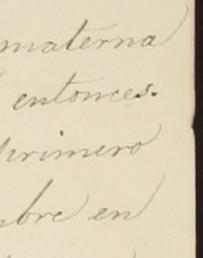 materna
entonces.
primero
bre en